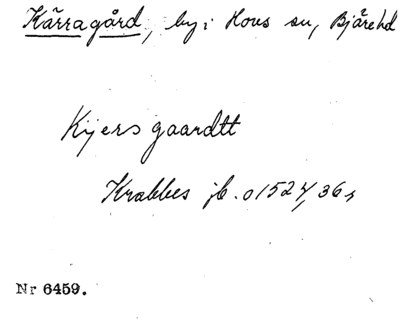 Kärragård, by i Hovs sn, Bjärehd
Kijersgaardtt
Krabbes jb. o 1524, 36,
Nr 6459.